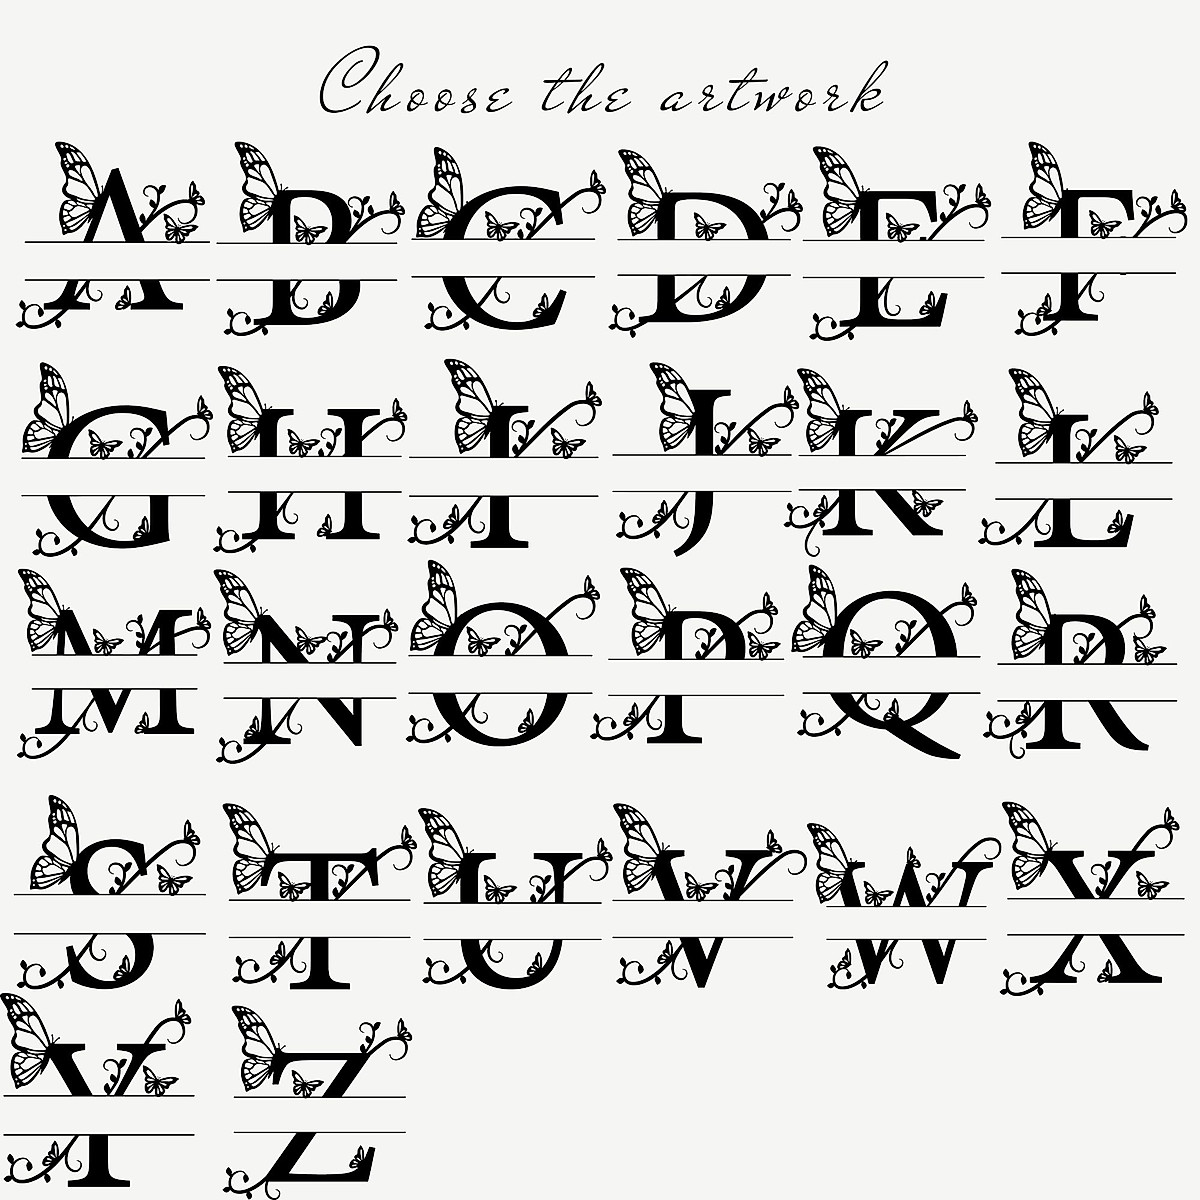 Choose the artwork
A B C D E F
G H I J K L
M N O P Q R
S T U V W X
Y Z